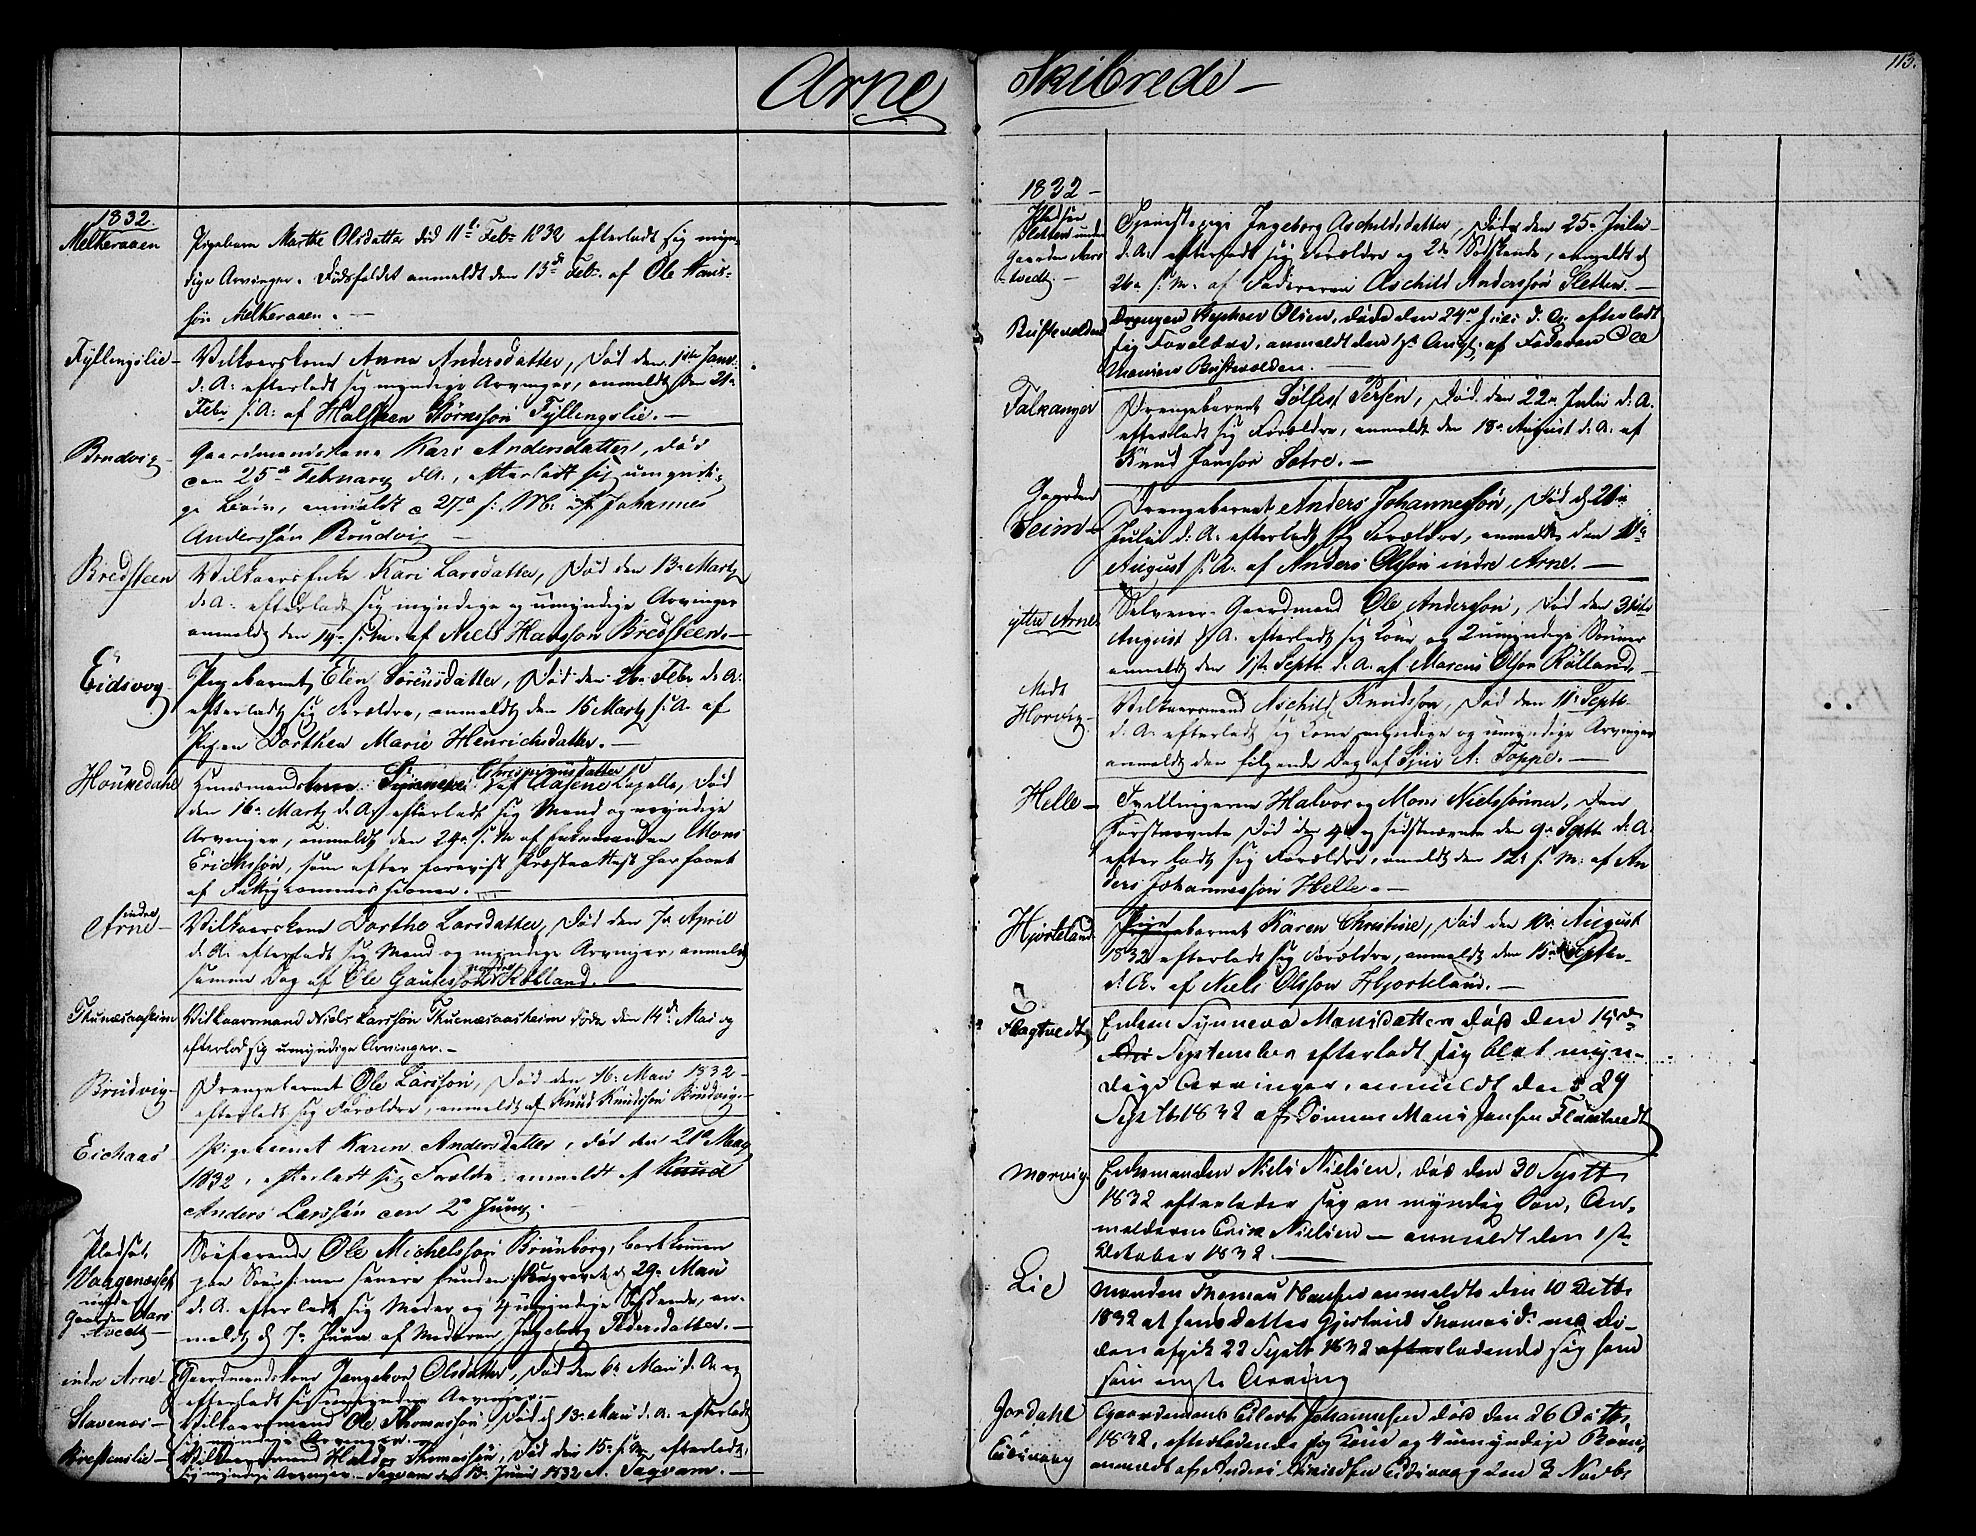 113.
Arne Skibrede
1832.
Melkeraaen
Pigebarn Marthe Olsdatter død 11te Febr 1832 efterladt sig myn-
dige Arvinger. Dødsfaldet anmeldt den 13de Febr. af Ole Hans-
søn Melkeraaen.
Fyllingslie
Vilkaarskone Anna Andersdatter, Død den 1ste Janr
d: A: efterladt sig myndige Arvinger, anmeldt den 21de
Febr s: A: af Halsteen Størnssøn Fyllingslie.
Brudvig
Gaardmandskone Kari Andersdatter, død
den 25de February d:A., efterladt sig umyndi-
ge Børn, anmeldt d 27de s: M: af Johannes
Anderssøn Brudvig
Bredsteen
Vilkaarsenke Kari Larsdatter, Død den 13de Marty
d: A: efterladt sig myndige og umyndige Arvinger
anmeldt den 14de s: M: af Niels Hanssøn Bredsteen.
Eidsvog
Pigebarnet Elen Sørensdatter, Død den 26de Febr d: A:
efterladt sig Forældre, anmeldt den 15 Marty s: A. af
Pigen Dorthea Marie Henrichsdatter.
Hounedahl
Huusmandskone Synneve Chrispinusdatter af Aasene Capelle, død
den 16de Marty d: A: efterladt sig Mand og myndige
Arvinger, anmeldt den 24de s: M af Enkemanden Mons
Erichssøn, som efter foreviist Præsteattest har faaet
af Fattigcommissionen.
indre
Arne
Vilkaarskone Dorthe Larsdatter, Død den 7de April
d: A: efterladt sig Mand og myndige Arvinger, anmeldt
samme Dag af Ole Gautessøn nordre Rølland.
Thunæsaasheim
Vilkaarsmand Niels Larssøn Thuenæsaasheim døde den 14de Mai og
efterlod sig umyndige Arvinger.
Brudvig
Drengebarnet Ole Larssøn, Død den 16de Mai 1832
efterladt sig Forældre, anmeldt af Knud Knudssøn Brudvig.
Eichaas
Pigebarnet Karen Andersdatter, død den 21de May
1832, efterladt sig Forældre anmeldt af Knud
Anders Larssøn den 2de Juny.
Pladset
Vaagenæsset
under
Gaarden Aars
tvedt
Søefarende Ole Michelssøn Brünborg, bortkommen
paa Søen siden senere funden, begravet d 29de Mai
d. A. efterladt sig Moder og 4 umyndige Sødskende, an-
meldt d 7de Juni af Moderen Ingeborg Pedersdatter.
indre Arne
Gaardmandskone Ingebor Olsdatter, Død den 6te Mai d. A. og
efterladt sig umyndige Arvinger.
Stavenæs
Vilkaarsmand Ole Thomassøn, Død d 13de Mai d. A. efterladt
sig myndige Arvinger.
Breistenslie
Vilkaarsmand Haldor Thomassøn, Død den 15de s: M efterladt
sig myndige Arvinger. Tagvam den 13de Juni 1832 A. Tagvam.
1832
Pladsen
Sletten under
Gaarden Aars
tvedt
Tjenestepige Ingeborg Aschildsdatter, Døde den 25de Julii
d: A: efterladt sig Forældre og 2de Sødskende, anmeldt d
26de s: M: af Faderen Aschild Anderssøn Sletten.
Bustevolden
Drengen Stephen Olsen, døde den 24de Juli d: A: efterladt
sig Forældre, anmeldt den 1ste Augt: af Faderen Ole
Monsen Bustevolden.
Falkanger
Drengebarnet Sølfest Persen, Død den 22de Julii d: A.
efterladt sig Forældre, anmeldt den 18de August d: A: af
Knud Janssøn Sætre.
Gaarden
Seim
Drengebarnet Anders Johannessøn, Død d 21de
Julii d: A: efterladt sig Forældre, anmeldt den 11te
August s: A. af Anders Olssøn indre Arne.
yttre Arne
Selveier Gaardmand Ole Anderssøn, Død den 31te
August d: A: efterladt sig Kone og 2 umyndige Sønner
anmeldt den 1ste Septb: d. A. af Marcus Olssøn Rølland.
Midt
Horvig
Vilkaarsmand Aschild Knudssøn, Død den 11te Septb
d. A: efterladt sig Kone myndige og umyndige Arvinger
anmeldt den følgende Dag af Siur A. Toppe.
Helle
Tvillingerne Halvor og Mons Nielssønner, Den
Førstnævnte Død den 4de og sidstnævnte den 9de Septb d: A:
efterladt sig Forældre, anmeldt den 12te s: M: af An
ders Johannessøn Helle.
Hjorteland
Pigebarnet Karen Christine, Død den 10de August
1832 efterladt sig Forældre, anmeldt den 15de Septbr
d: A. af Niels Olssøn Hjorteland.
Flagtvedt
Enken Synneva Monsdatter død den 15de
September efterladt sig blot myn-
dige Arvinger, anmeldt den 29
Septb 1832 af Sønnen Mons Jansen Flagtvedt
Morvig
Enkemanden Niels Nielsen, død den 30 Septb
1832 efterleder sig en myndig Søn, An-
melderen Erik Nielsen anmeldt den 1ste
October 1832
Lie
Manden Thomas Hansen anmeldte den 10 Octb
1832 at hans datter Gjertrud Thomasdr ved Dø-
den afgik 22 Septb 1832 efterladende sig ham
som eneste Arving
Jordahl
Eidsvaag
Gaardmand Eilert Johannesen død den 26 Octb
1832, efterladende sig Kone og 4 umyndige Børn,
anmeldt af Anders Eidsvaag den 2 Novbr